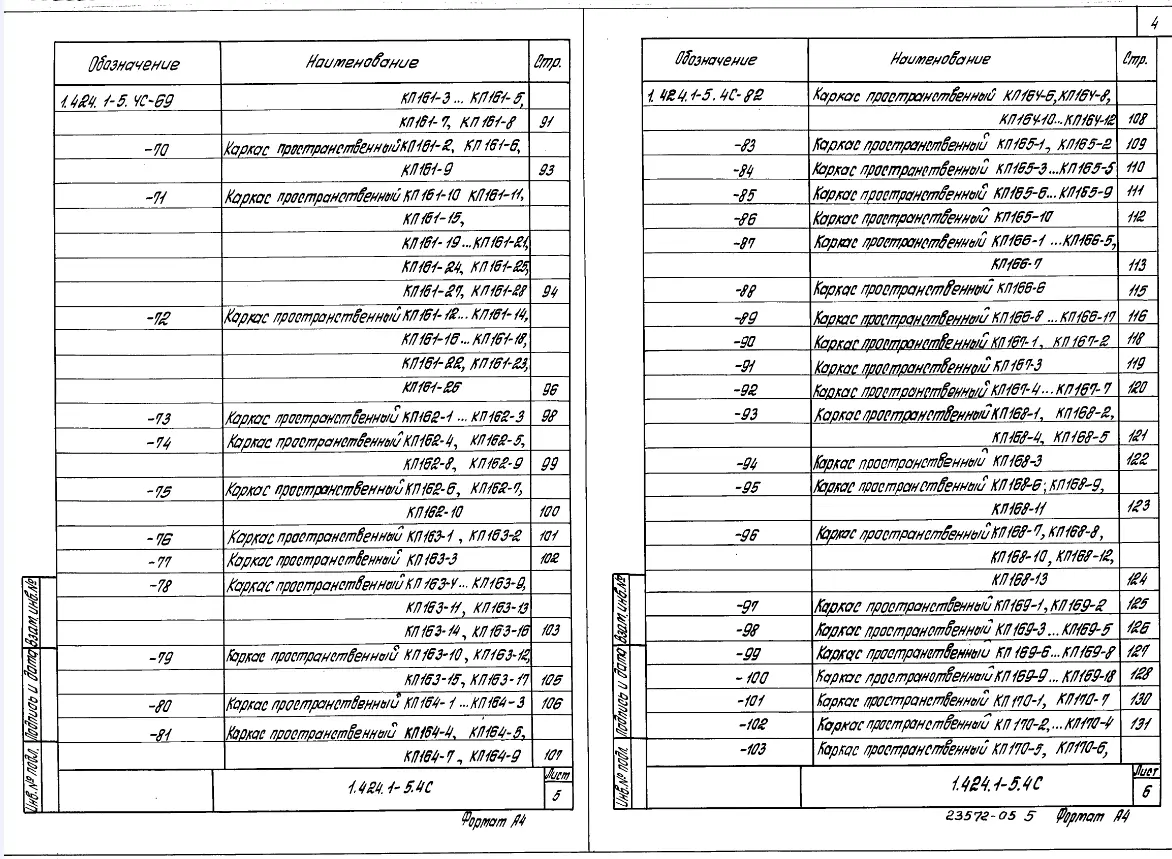 4
Обозначение Наименование Стр.
1.424.1-5.4С-69 КП161-3 ... КП161-5,
КП161-7, КП161-8 91
-70 Каркас пространственный КП161-2, КП161-6,
КП161-9 93
-71 Каркас пространственный КП161-10 КП161-11,
КП161-15,
КП161-19...КП161-21,
КП161-24, КП161-25,
КП161-27, КП161-28 94
-72 Каркас пространственный КП161-12... КП161-14,
КП161-16... КП161-18,
КП161-22, КП161-23,
КП161-26 96
-73 Каркас пространственный КП162-1 ... КП162-3 98
-74 Каркас пространственный КП162-4, КП162-5,
КП162-8, КП162-9 99
-75 Каркас пространственный КП162-6, КП162-7,
КП162-10 100
-76 Каркас пространственный КП163-1 , КП163-2 101
-77 Каркас пространственный КП163-3 102
-78 Каркас пространственный КП163-4... КП163-9,
КП163-11, КП163-13
КП163-14, КП163-16 103
-79 Каркас пространственный КП163-10, КП163-12,
КП163-15, КП163-17 105
-80 Каркас пространственный КП164-1 ...КП164-3 106
-81 Каркас пространственный КП164-4, КП164-5,
КП164-7, КП164-9 107
1.424.1-5.4С
Лист
5
Формат А4
Инв.№ подл. Подпись и дата Взам.инв.№
Обозначение Наименование Стр.
1.424.1-5.4С-82 Каркас пространственный КП164-6, КП164-8,
КП164-10...КП164-12 108
-83 Каркас пространственный КП165-1, КП165-2 109
-84 Каркас пространственный КП165-3...КП165-5 110
-85 Каркас пространственный КП165-6...КП165-9 111
-86 Каркас пространственный КП165-10 112
-87 Каркас пространственный КП166-1 ...КП166-5,
КП166-7 113
-88 Каркас пространственный КП166-6 115
-89 Каркас пространственный КП166-8 ...КП166-17 116
-90 Каркас пространственный КП167-1, КП167-2 118
-91 Каркас пространственный КП167-3 119
-92 Каркас пространственный КП167-4...КП167-7 120
-93 Каркас пространственный КП168-1, КП168-2,
КП168-4, КП168-5 121
-94 Каркас пространственный КП168-3 122
-95 Каркас пространственный КП168-6; КП168-9,
КП168-11 123
-96 Каркас пространственный КП168-7, КП168-8,
КП168-10, КП168-12,
КП168-13 124
-97 Каркас пространственный КП169-1, КП169-2 125
-98 Каркас пространственный КП169-3 ...КП169-5 126
-99 Каркас пространственный КП169-6...КП169-8 127
-100 Каркас пространственный КП169-9... КП169-18 128
-101 Каркас пространственный КП170-1, КП170-7 130
-102 Каркас пространственный КП170-2,...КП170-4 131
-103 Каркас пространственный КП170-5, КП170-6,
1.424.1-5.4С
Лист
6
23572-05 5 Формат А4
Инв.№ подл. Подпись и дата Взам.инв.№